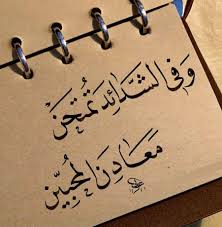 وَفي الشَّدائِد تُمتَحَنُ
مَعادِنُ المُحِبّينَ